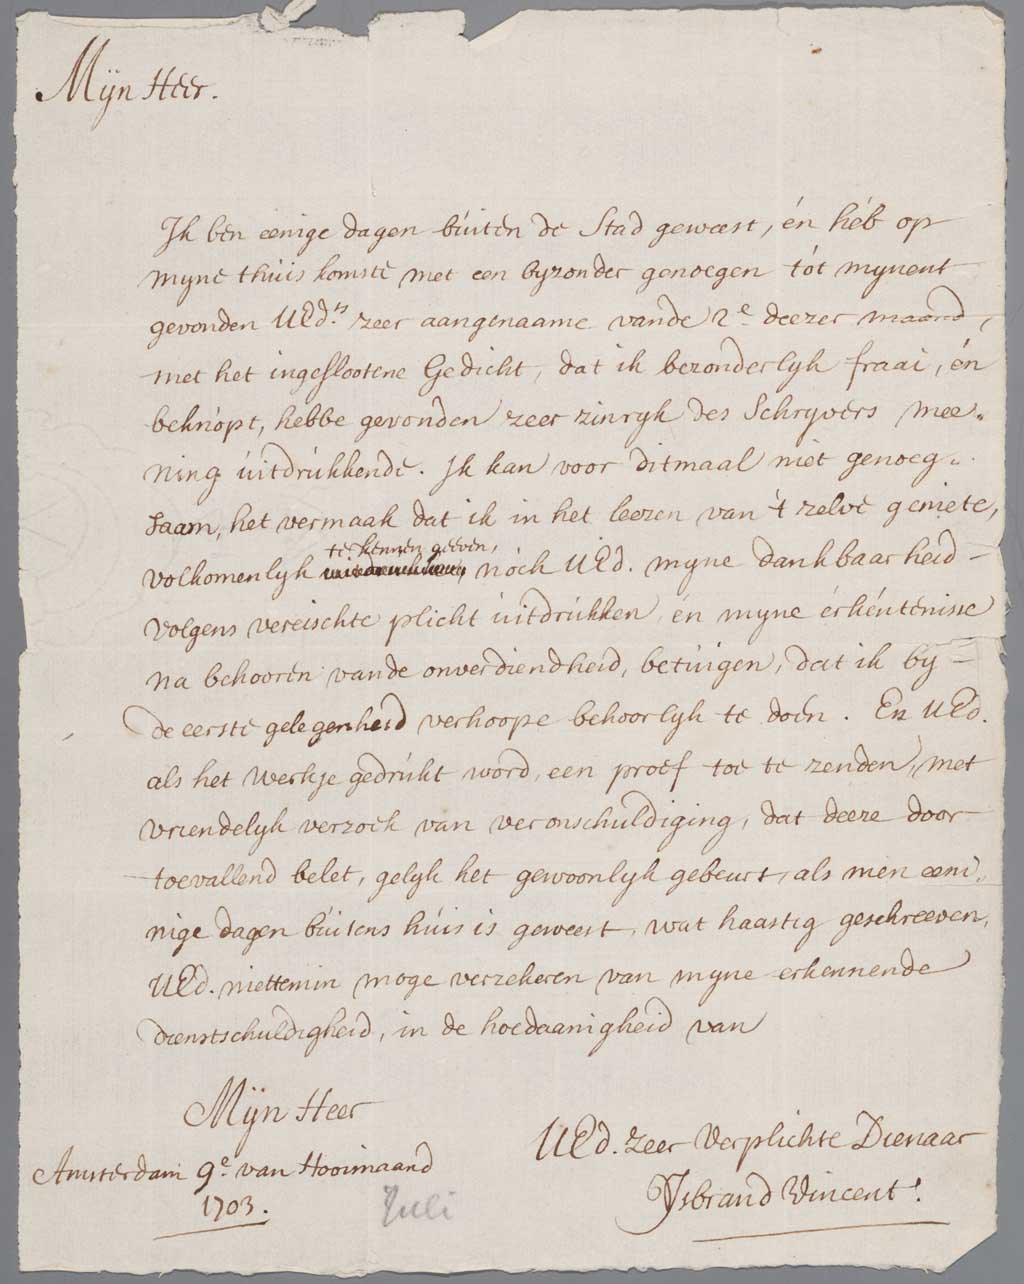 Mijn Heer.
Ik ben eenige dagen buiten de Stad geweest, én héb op
myne thuiskomste met een byzonder genoegen tót mynent
gevonden UEd.ns zeer aangenaame vande 2e deezer maand,
met het ingeslootene Gedicht, dat ik bezonderlyk fraai, én
beknópt, hebbe gevonden zeer zinryk des Schryvers mee„
ning uitdrukkende. Ik kan voor ditmaal niet genoeg„
saam, het vermaak dat ik in het leezen van 't zelve geniete,
te kennen geeven,
volkomenlyk nóch UEd. myne dankbaarheid
volgens vereischte plicht uitdrukken, én myne érkéntenisse
na behooren vande onverdiendheid, betuigen, dat ik by
de eerste gelegenheid verhoope behoorlyk te doén. En UEd.
als het werkje gedrukt word, een proef toe te zenden, met
vriendelyk verzoek van veronschuldiging, dat deeze door
toevallend belet, gelyk het gewoonlyk gebeurt, als men eeni„
nige dagen buitens huis is geweest, wat haastig geschreeven,
UEd. niettemin moge verzekeren van myne erkennende
dienstschuldigheid, in de hoedaanigheid van
Mijn Heer
UEd. zeer Verplichte Dienaar
Amsterdam 9e van Hooimaand
Ysbrand Vincent.
1703.
Juli